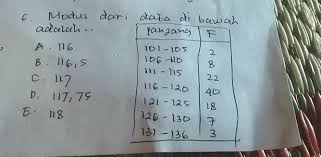 6. Modus dari data di bawah
adalah..
A. 116
B. 116,5
C. 117
D. 117,75
E. 118
panjang F
101-105 2
106-110 8
111-115 22
116-120 40
121-125 18
126-130 7
131-136 3